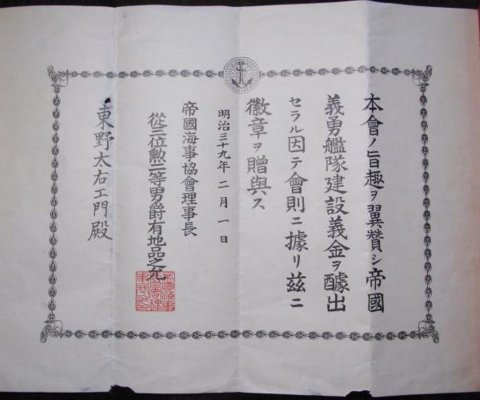 本會ノ旨趣ヲ翼賛シ帝國
義勇艦隊建設義金ヲ醵出
セラル因テ會則ニ據リ茲ニ
徽章ヲ贈與ス
明治三十九年二月一日
帝國海事協會理事長
從三位勲二等男爵有地品之允
東野太右エ門殿